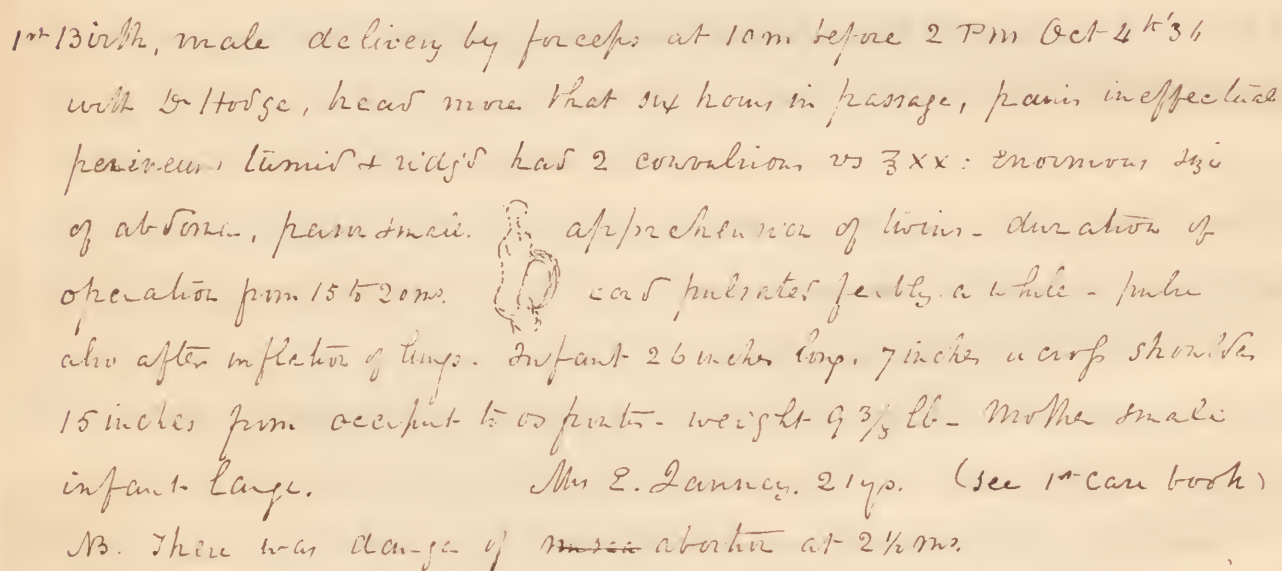 1st Birth, male delivery by forceps at 10m before 2 PM Oct 4th 36
with Dr Hodge, head more that six hours in passage, pains ineffectual
perineum tumid & ridg'd had 2 convulsions vs ℥xx: Enormous size
of abdomen, pains small. apprehension of twins - duration of
operation from 15 to 20ms. cord pulsates feebly a while - pulse
also after inflation of lungs. Infant 26 inches long. 7 inches across shoulders
15 inches from occiput to os frontis - weight 9 3/5 lb - Mother small
infant large. Mrs E. Janney. 21 yrs. (see 1st case book)
NB. There was danger of abortion at 2½ ms.